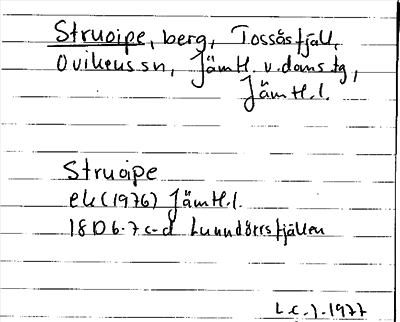 Struoipe, berg, Tossåsfjäll,
Ovikens sn, Jämtl. v. doms.tg,
Jämtl.l.
Struoipe
ek (1976) Jämtl.l.
18D 6-7 c-d Lunndörrsfjällen
L.C.J. 1977